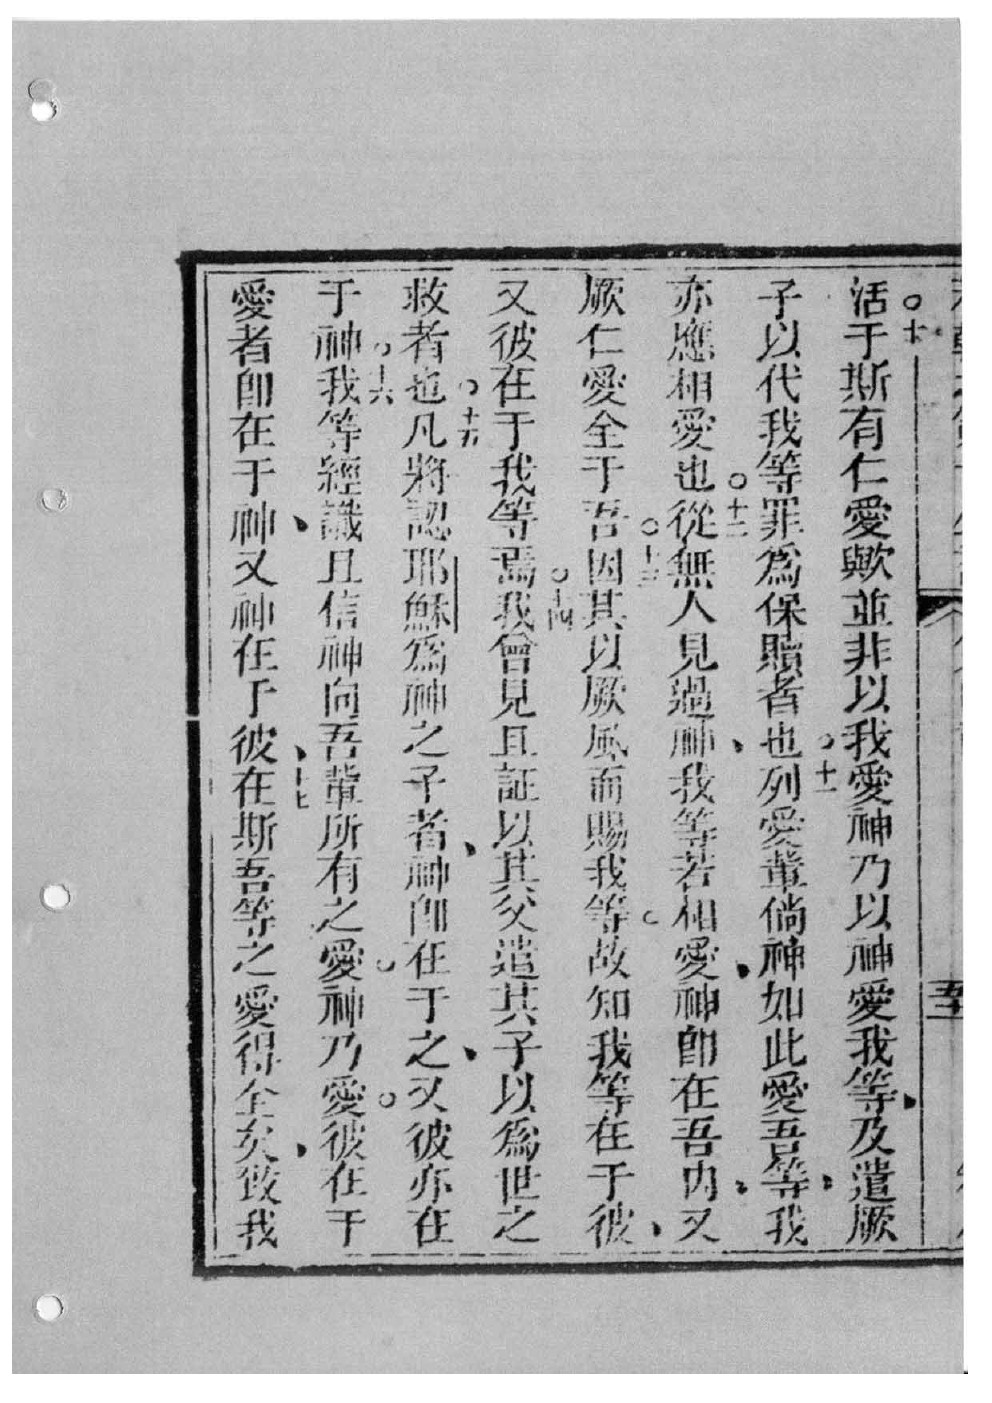 活于○十斯有仁愛歟並非以我愛神乃以神愛我等、及遣厥
子以代我等罪為保贖者也○十一列愛輩倘神如此愛吾等、我
亦應相愛也○十二從無人見過神、我等若相愛、神即在吾內、又
厥仁愛全于吾○十三因其以厥風而賜我等。故知我等在于彼、
又彼在于我等焉○十四我曾見且証以其父遣其子以為世之
救者也○十五凡將認耶穌為神之子者、神即在于之、又彼亦在
于神○十六我等經識且信神向吾輩所有之愛。神乃愛。彼在于
愛者即在于神、又神在于彼、十七在斯吾等之愛得全矣、致我
五